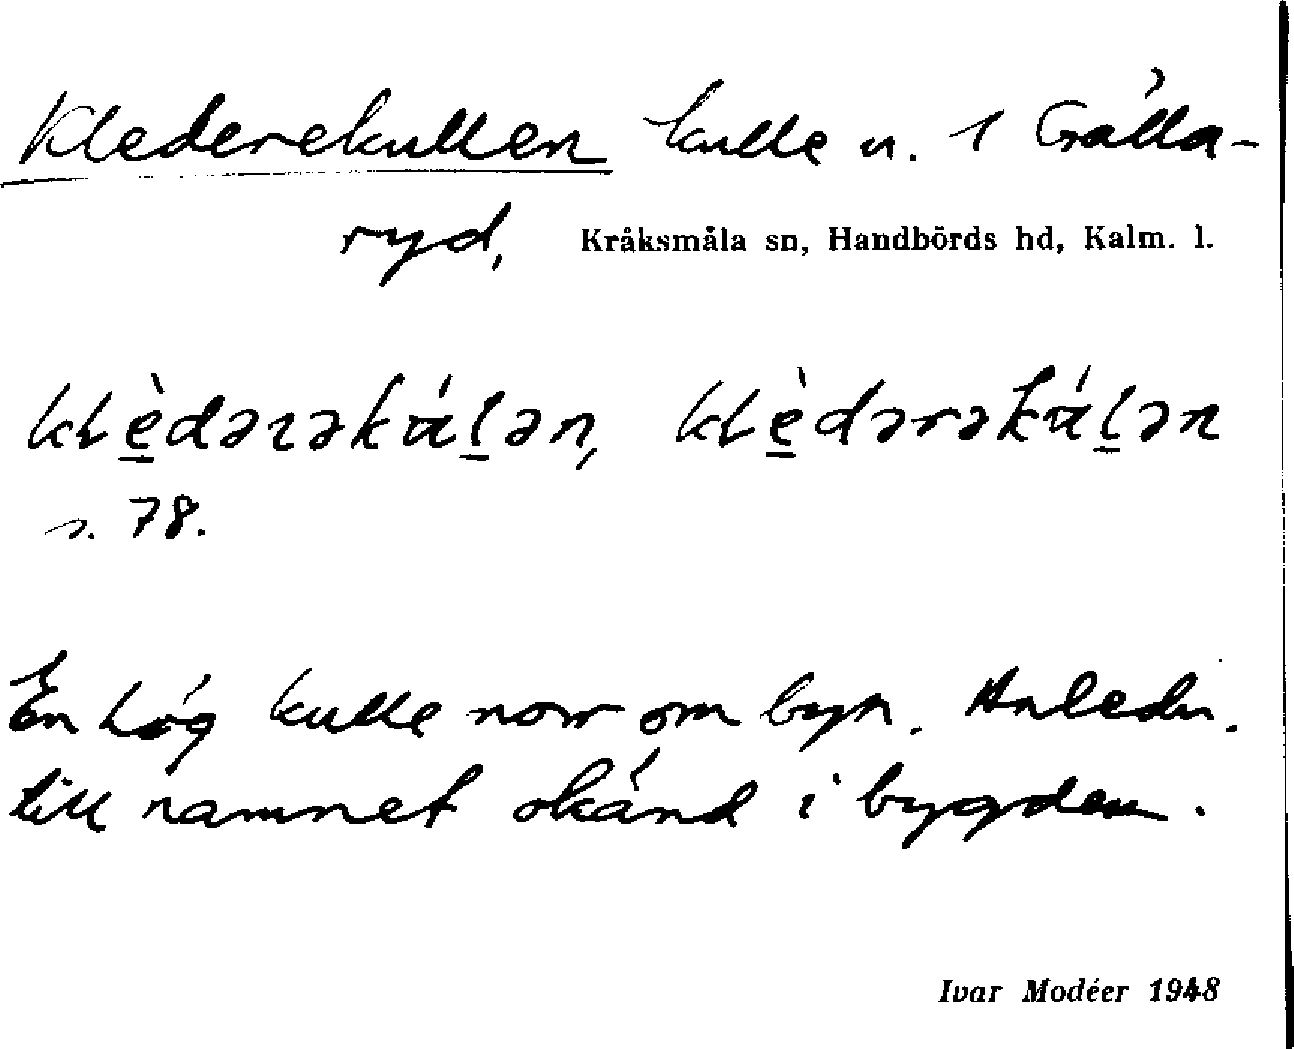 Klederekullen kulle n. 1 Gålla-
ryd, Kråksmåla sn, Handbörds hd, Kalm. l.
s. 78.
En hög kulle norr om byn. Anledn.
till namnet okänd i bygden.
Ivar Modéer 1948